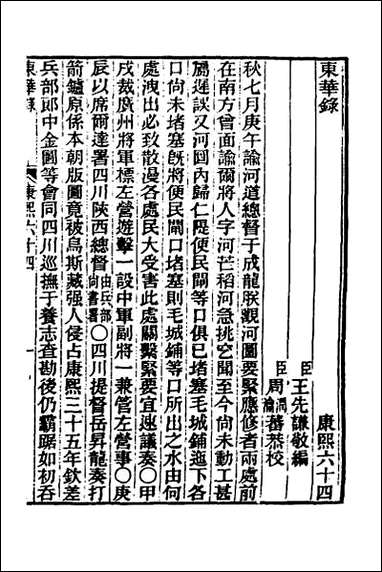 東華錄 康熙六十四
臣王先謙敬編
臣周潤蕃周瀹蕃恭校
秋七月庚午諭河道總督于成龍朕觀河圖要緊應修者兩處前
在南方曾面諭爾將人字河芒稻河急挑空閒至今尚未動工甚
屬遲誤又河囘內歸仁隄便民閘等口俱已堵塞毛城鋪迤下各
口尚未堵塞旣將便民閘口堵塞則毛城鋪等口所出之水由何
處洩出必致散漫各處民大受害此處關繫緊要宜速議奏○甲
戌裁廣州將軍標左營遊擊一設中軍副將一兼管左營事○庚
辰以席爾達署四川陝西總督由兵部尚書署○四川提督岳昇龍奏打
箭鑪原係本朝版圖竟被烏斯藏强人侵占康熙三十五年欽差
兵部郎中金圖等會同四川巡撫于養志查勘後仍霸踞如初吞
東華錄 康熙六十四 一